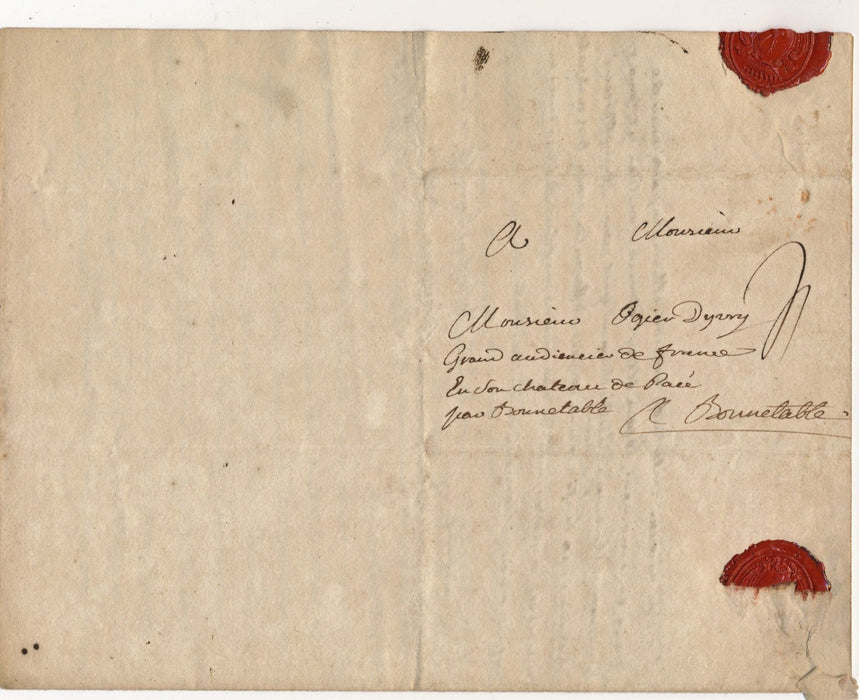 A Monsieur
Monsieur Ogier Dyvry
Grand audiencier de france
En Son chateau de Pacé
par Bonnetable A Bonnetable